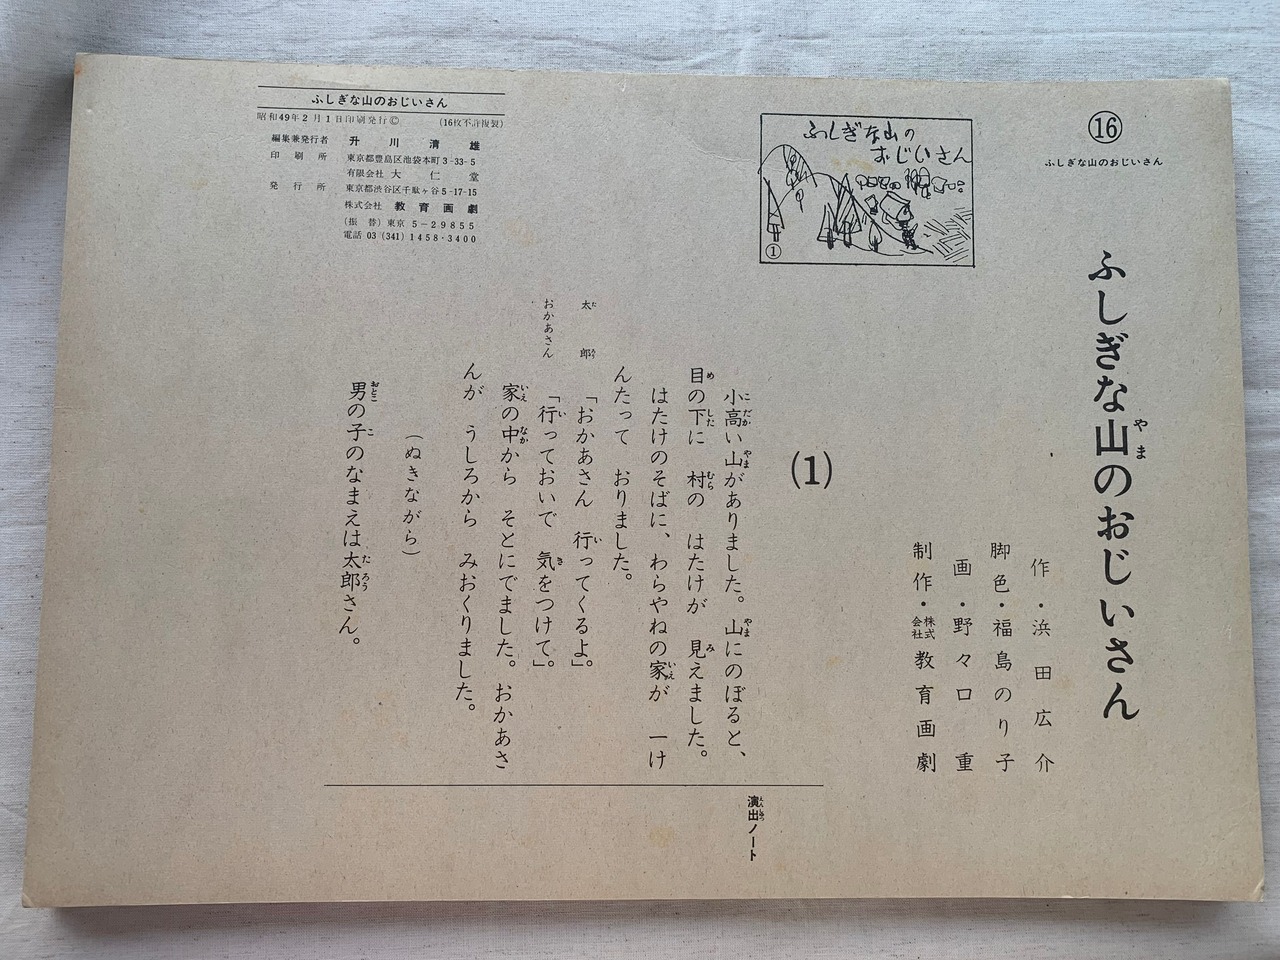 ⑯
ふしぎな山のおじいさん
ふしぎな山のおじいさん
作・浜田広介
脚色・福島のり子
画・野々口重
制作・株式会社教育画劇
ふしぎな山の
おじいさん
①
(1)
小高い山がありました。山にのぼると、
目の下に 村の はたけが 見えました。
はたけのそばに、わらやねの家が 一け
んたって おりました。
太郎 「おかあさん 行ってくるよ」。
おかあさん 「行っておいで 気をつけて」。
家の中から そとにでました。おかあさ
んが うしろから みおくりました。
(ぬきながら)
男の子のなまえは太郎さん。
演出ノート
ふしぎな山のおじいさん
昭和49年2月1日印刷発行© (16枚不許複製)
編集兼発行者 升川清雄
印刷所 東京都豊島区池袋本町3-33-5
有限会社 大仁堂
発行所 東京都渋谷区千駄ヶ谷5-17-15
株式会社 教育画劇
(振替) 東京 5-29855
電話 03 (341) 1458・3400